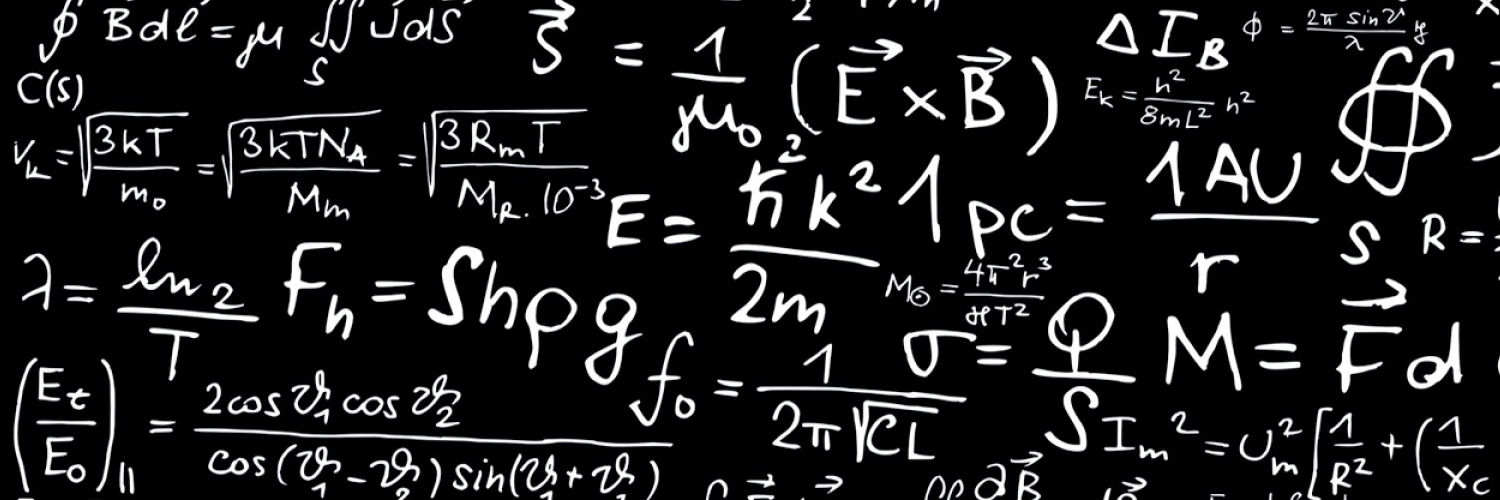 ∮ B dl = μ ∬ J dS
C(S) S
S⃗ = 1/μ₀ (E⃗ × B⃗)
Δ I_B
ϕ = 2π sin ϑ / λ y
E_k = h²/8mL² n²
∯ S
v_k = √(3kT/m₀) = √(3kTN_A/M_m) = √(3R_mT/M_R·10⁻³)
E = ħ²k²/2m
1 pc = 1AU/r
R =
λ = ln 2/T
F_h = Shρg
M_⊙ = 4π²r³/ϰT²
σ = Q/S
M = F⃗ d
(E_t/E_0)_∥ = 2cos ϑ₁ cos ϑ₂ / cos(ϑ₁ - ϑ₂) sin(ϑ₁ + ϑ₂)
f₀ = 1/2π√CL
I_m² = U_m² [1/R² + (1/X_C
∂B⃗